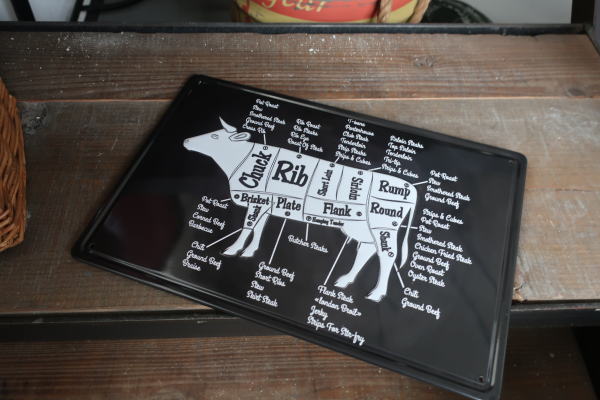 Pot Roast
Stew
Smothered Steak
Ground Beef
Cross Rib
Rib Roast
Rib Steaks
Rib Eye
Roast Of Steak
T-bone
Porterhouse
Club Steak
Tenderloin
Strip Steaks
Strips & Cubes
Sirloin Steaks
Top Sirloin
Tenderloin
Tri-tip
Strips & Cubes
Pot Roast
Stew
Smothered Steak
Ground Beef
Chuck
Rib
Short Loin
Sirloin
Rump
Brisket
Plate
Flank
Round
Shank
Hanging Tender
Shank
Pot Roast
Stew
Corned Beef
Barbecue
Chili
Ground Beef
Braise
Ground Beef
Short Ribs
Stew
Skirt Steak
Butcher Steaks
Flank Steak
«London Broil»
Jerky
Strips For Stir-fry
Strips & Cubes
Pot Roast
Stew
Smothered Steak
Chicken Fried Steak
Ground Beef
Oven Roast
Oyster Steak
Chili
Ground Beef